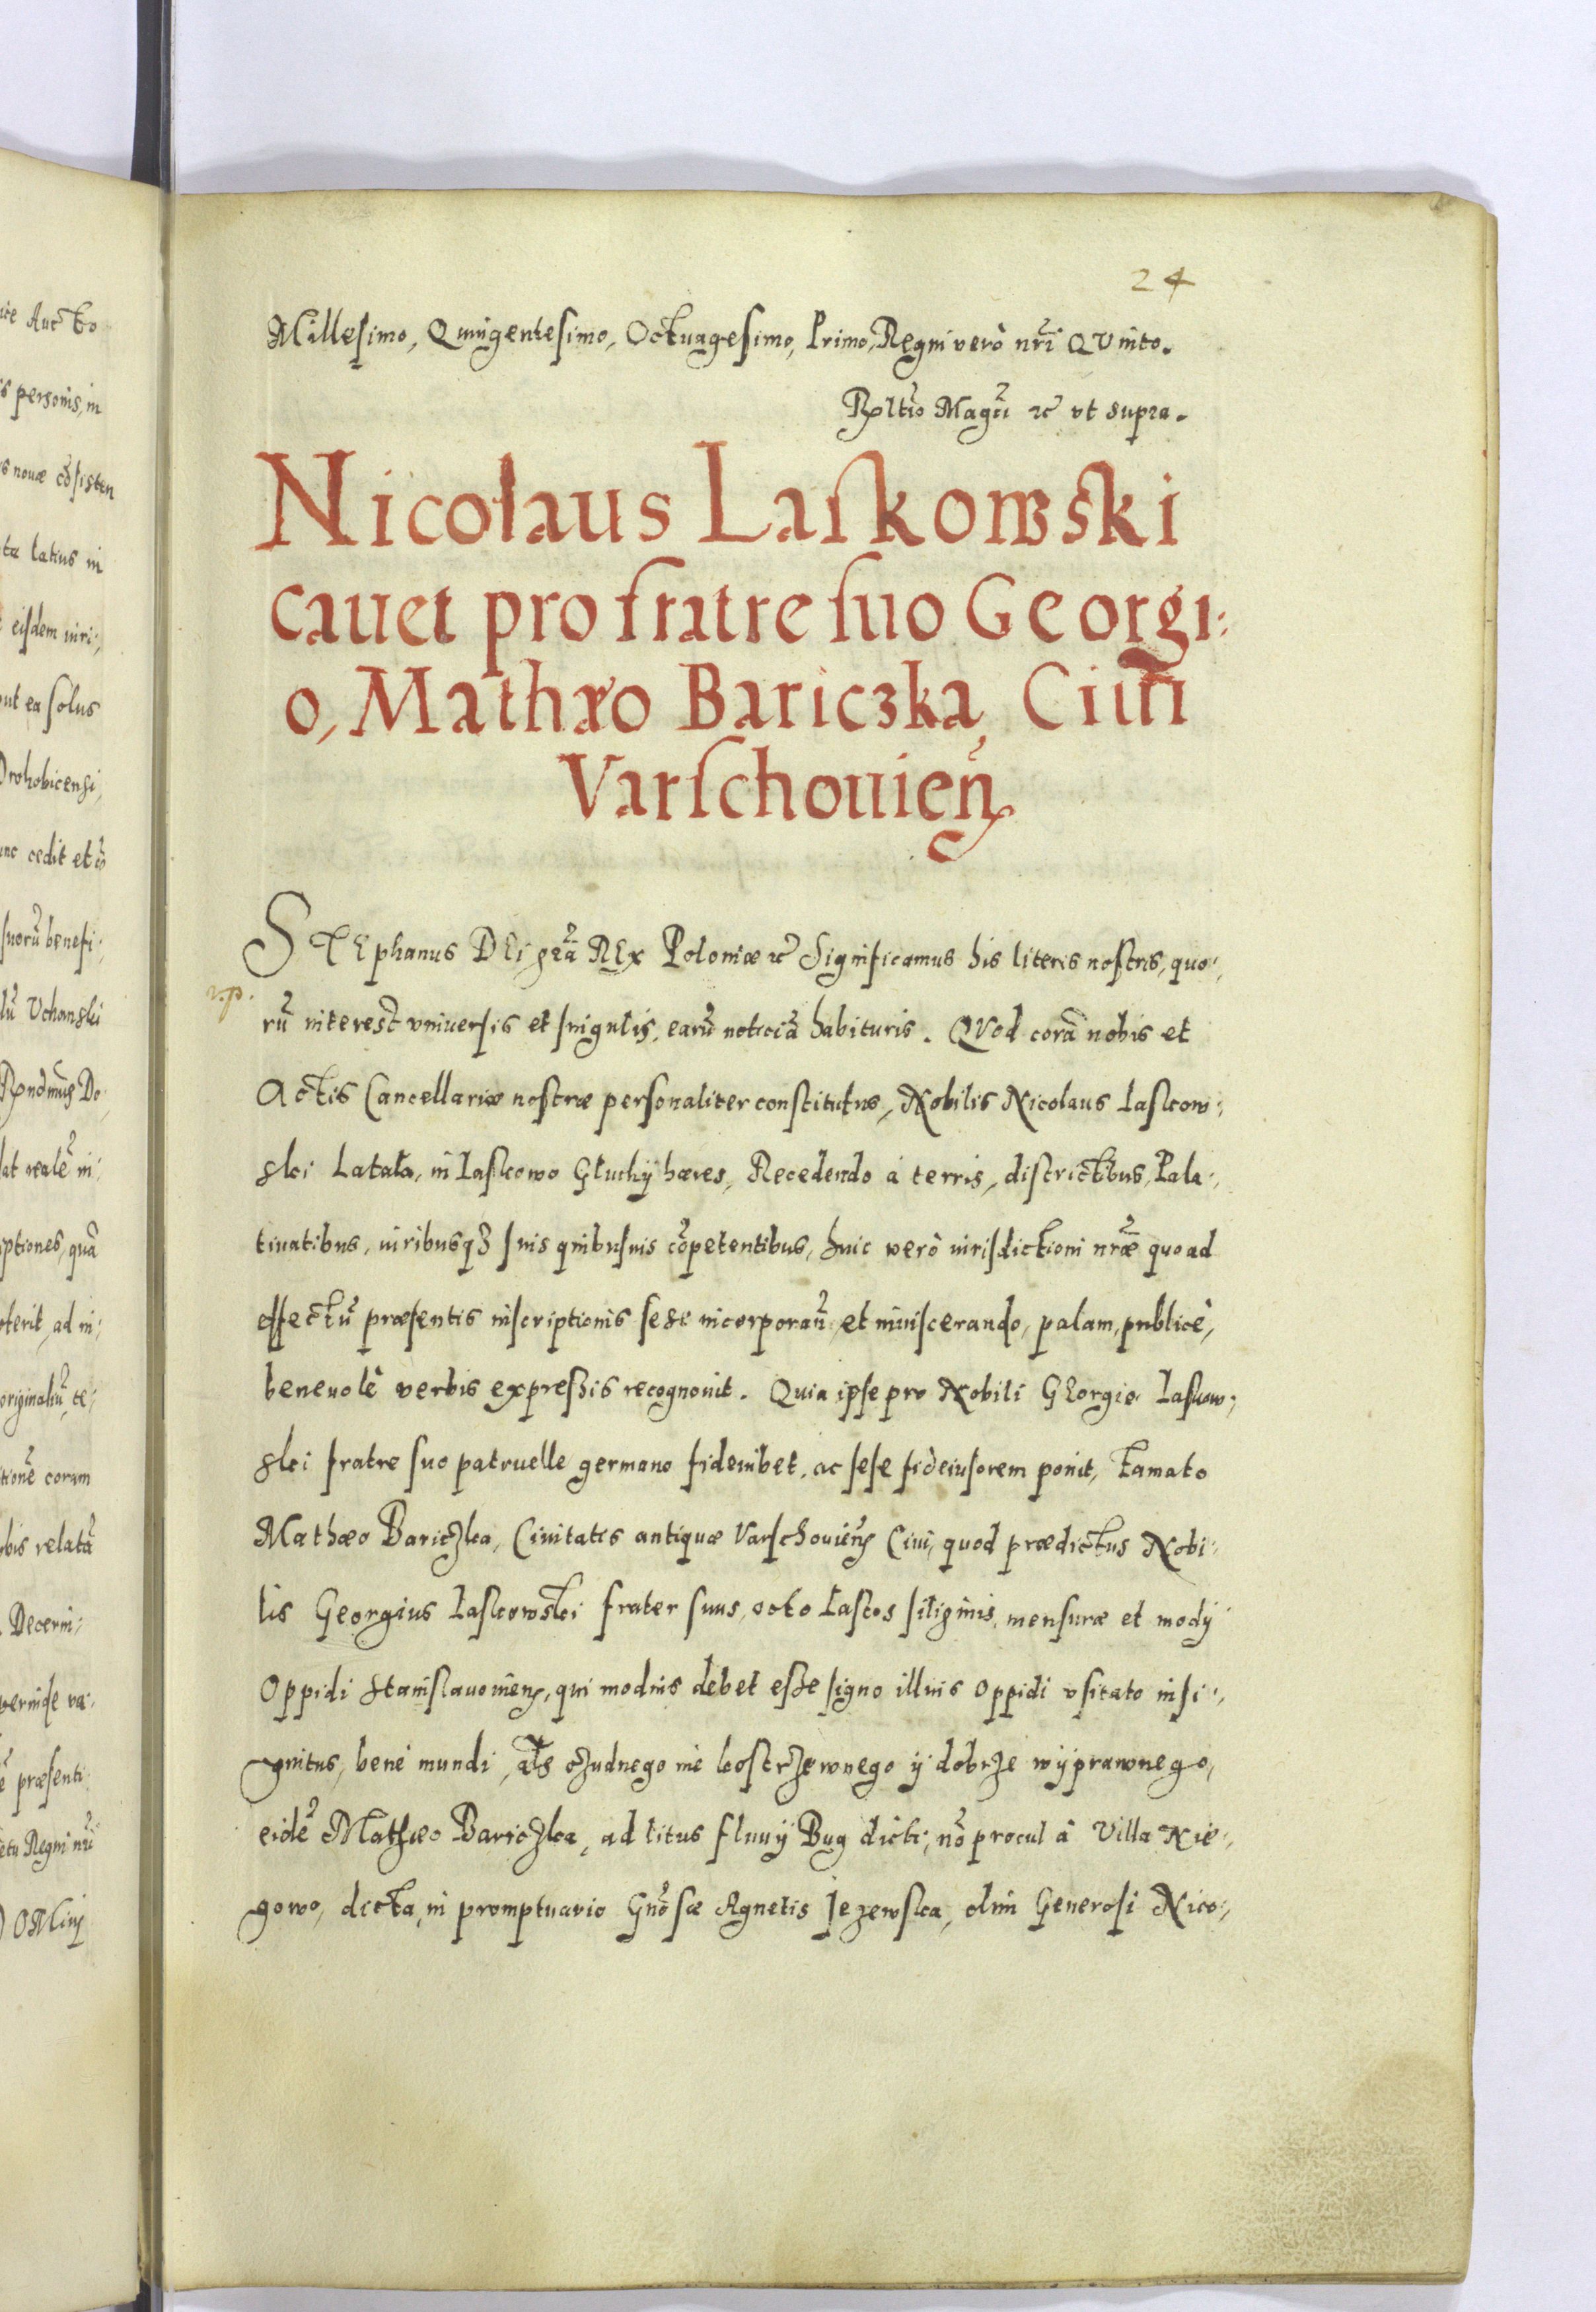 24
Millesimo, Quingentesimo, Octuagesimo, Primo, Regni verò nr̃i QVinto.
Reltio Magci ꝛc̃ vt supra.
Nicolaus Laſkowski
cauet pro fratre ſuo Georgi:
o, Mathæo Bariczka, Ciui
Varſchouien̄
STEphanus DEi gr̃a REx Poloniæ ꝛc̃ Significamus his literis noſtris, quo:,
v.p.
rũ interest vniuerſis et ſingulis, earũ noticiã habituris. QVod corã nobis et
Actis Cancellariæ noſtræ perſonaliter conſtitutus, Nobilis Nicolaus Laſkow:,
ski Latała, in Laſkowo Głuchÿ hæres, Recedendo á terris, diſtrictibus, Pala:,
tinatibus, iuribusqꝫ ſuis quibuſuis cõpetentibus, huic verò iuriſdictioni nr̃æ quo ad
effectũ præſentis inſcriptionis ſese incorporan̄ et inuiſcerando, palam, publicè,
beneuolè verbis expreßis recognouit. Quia ipſe pro Nobili GEorgio Laſkow:,
ski fratre ſuo patruelle germano fideiubet, ac ſeſe fideiuſorem ponit, famato
Mathæo Bariczka, Ciuitatis antiquæ Varſchouien̄ Ciui, quod prædictus Nobi:
lis Georgius Laſkowski frater ſuus, octo laſtos ſiliginis, menſuræ et modÿ
Oppidi Staniſlauouien̄, qui modius debet eſze ſigno illius oppidi vſitato inſi:,
gnitus, benè mundi, als czudnego nie koſtrzewnego ÿ dobrze wÿprawnego,
eidẽ Mathæo Bariczka, ad litus fluuÿ Bug dicti, nõ procul â Villa Nie:,
gowo, dicta, in promptuario Gnõſæ Agnetis Jezewſka, olim Generoſi Nico:,